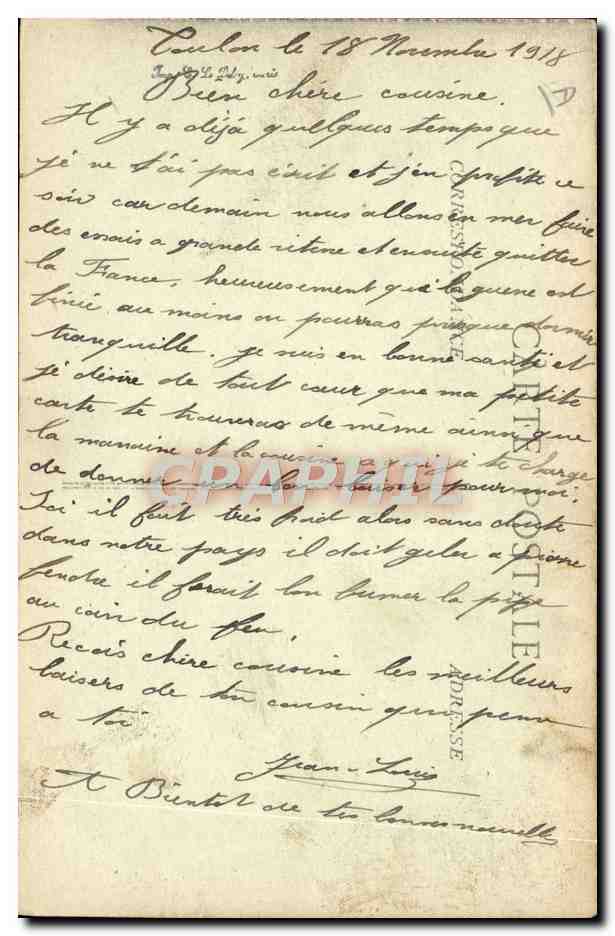 Toulon le 18 Novembre 1918
Bien chére cousine.
Il y a déjá quelques temps que
jé ne t'ai pas écrit et j'en profite ce
soir car demain nous allons en mer faire
des essais a grande vitesse et ensuite quitter
la France, heureusement que la guerre est
finie au moins on pourras presque dormir
tranquille. je suis en bonne santé et
jé désire de tout cœur que ma petite
carte te trouveras de même ainsi que
la marraine et la cousine a qui je te charge
de donner un bon baiser pour moi.
Ici il fait trés froid alors sans doute
dans notre pays il doit geler a pierre
fendre il ferait bon fumer la pipe
au coin du feu.
Recois chére cousine les meilleurs
baisers de ton cousin qui pense
a toi
Jean-Louis
A Bientot de tes bonnes nouvelles
CARTE POSTALE
CORRESPONDANCE
ADRESSE
CPAPHIL